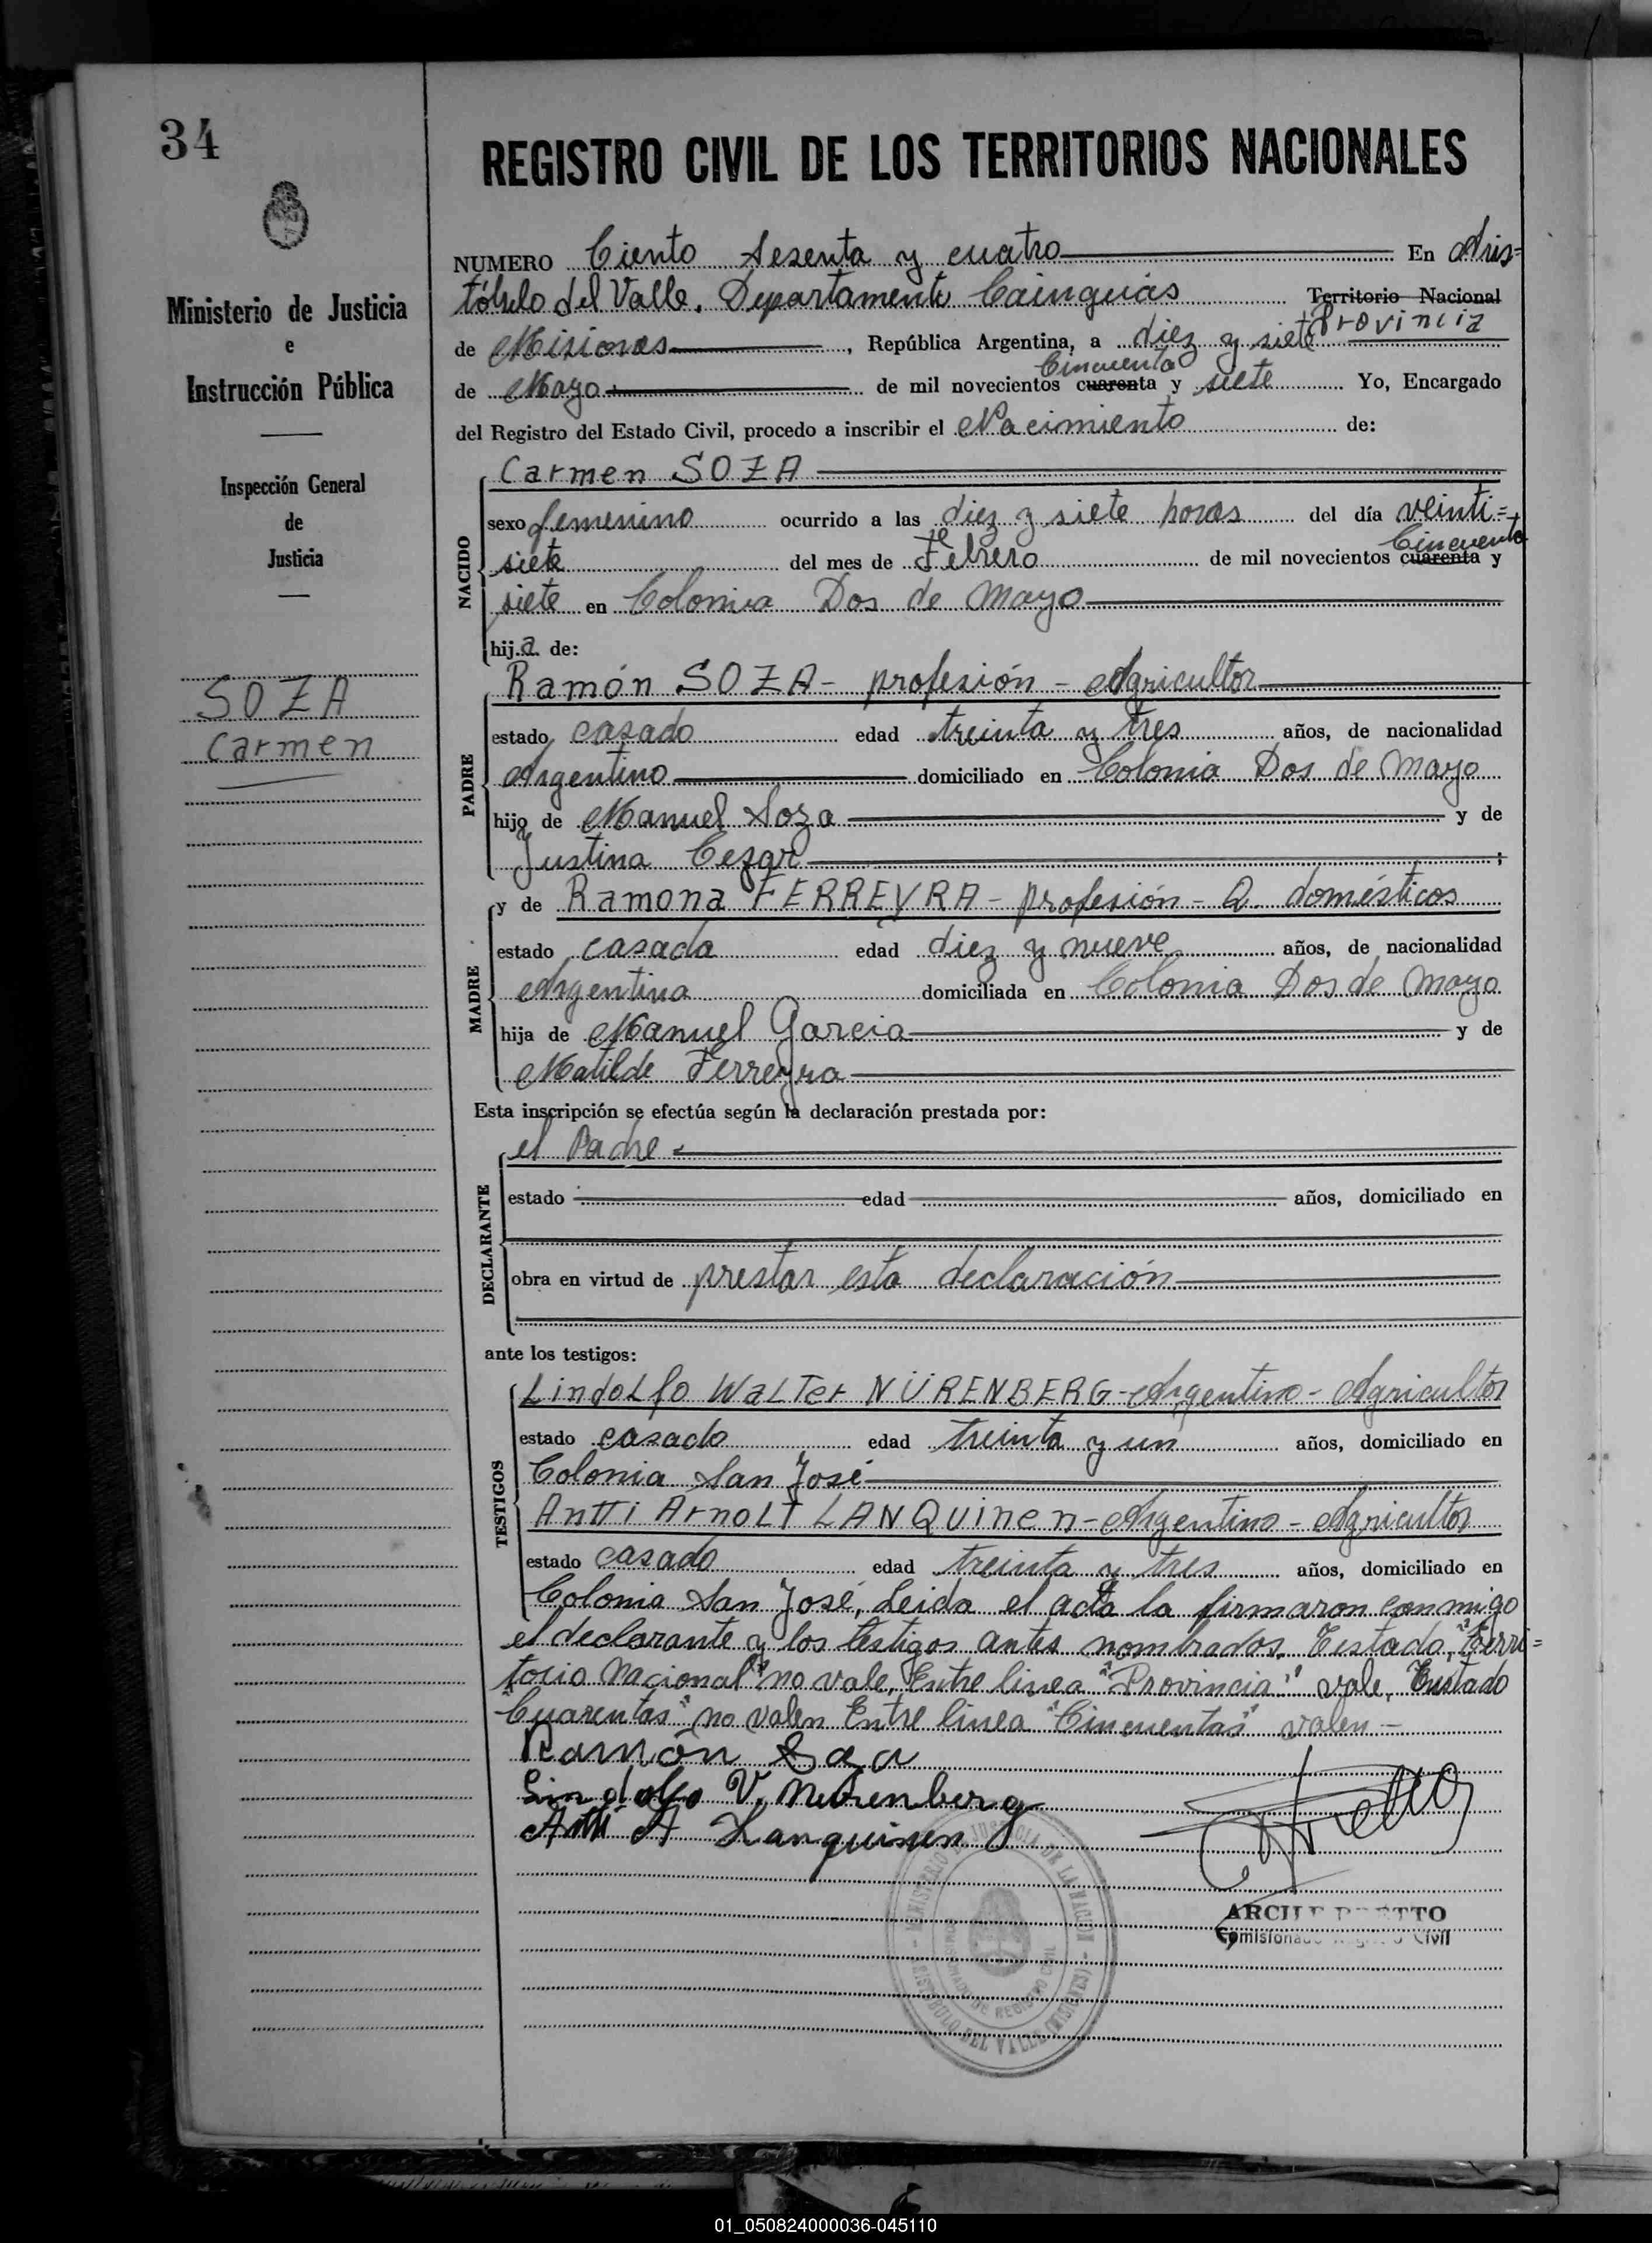 34
REGISTRO CIVIL DE LOS TERRITORIOS NACIONALES
Ministerio de Justicia
e
Instrucción Pública
Inspección General
de
Justicia
SOZA
Carmen
NUMERO Ciento Sesenta y cuatro En Aris=
tóbulo del Valle, Departamento Cainguás Territorio Nacional
Provincia
de Misiones, República Argentina, a diez y siete
Cincuenta
de Mayo de mil novecientos cuarenta y siete Yo, Encargado
del Registro del Estado Civil, procedo a inscribir el Nacimiento de:
NACIDO
Carmen SOZA
sexo femenino ocurrido a las diez y siete horas del día veinti=
Cincuenta
siete del mes de Febrero de mil novecientos cuarenta y
siete en Colonia Dos de Mayo
hija de:
PADRE
Ramón SOZA - profesión - Agricultor
estado casado edad treinta y tres años, de nacionalidad
Argentino domiciliado en Colonia Dos de Mayo
hijo de Manuel Soza y de
Justina Cezar;
MADRE
y de Ramona FERREYRA - profesión - Q. domésticos
estado casada edad diez y nueve años, de nacionalidad
Argentina domiciliada en Colonia Dos de Mayo
hija de Manuel Garcia y de
Matilde Ferreyra
Esta inscripción se efectúa según la declaración prestada por:
DECLARANTE
el Padre
estado edad años, domiciliado en
obra en virtud de prestar esta declaración
ante los testigos:
TESTIGOS
Lindolfo Walter NÜRENBERG - Argentino - Agricultor
estado casado edad treinta y un años, domiciliado en
Colonia San José
Antti Arnolt LANQUinen - Argentino - Agricultor
estado casado edad treinta y tres años, domiciliado en
Colonia San José, Leida el acta la firmaron conmigo
el declarante y los testigos antes nombrados. Testado, "Terri=
torio Nacional" no vale, Entre linea "Provincia" vale, Testado
"Cuarentas" no valen Entre linea "Cincuentas" valen -
Ramón Soza
Lindolfo V. Nürenberg
Antti A Lanquinen
MINISTERIO DE JUSTICIA DE LA NACION
DE REGISTRO CIVIL
ARISTOBULO DEL VALLE (MISIONES)
ARCI TTO
Comisionado Registro Civil
01_050824000036-045110